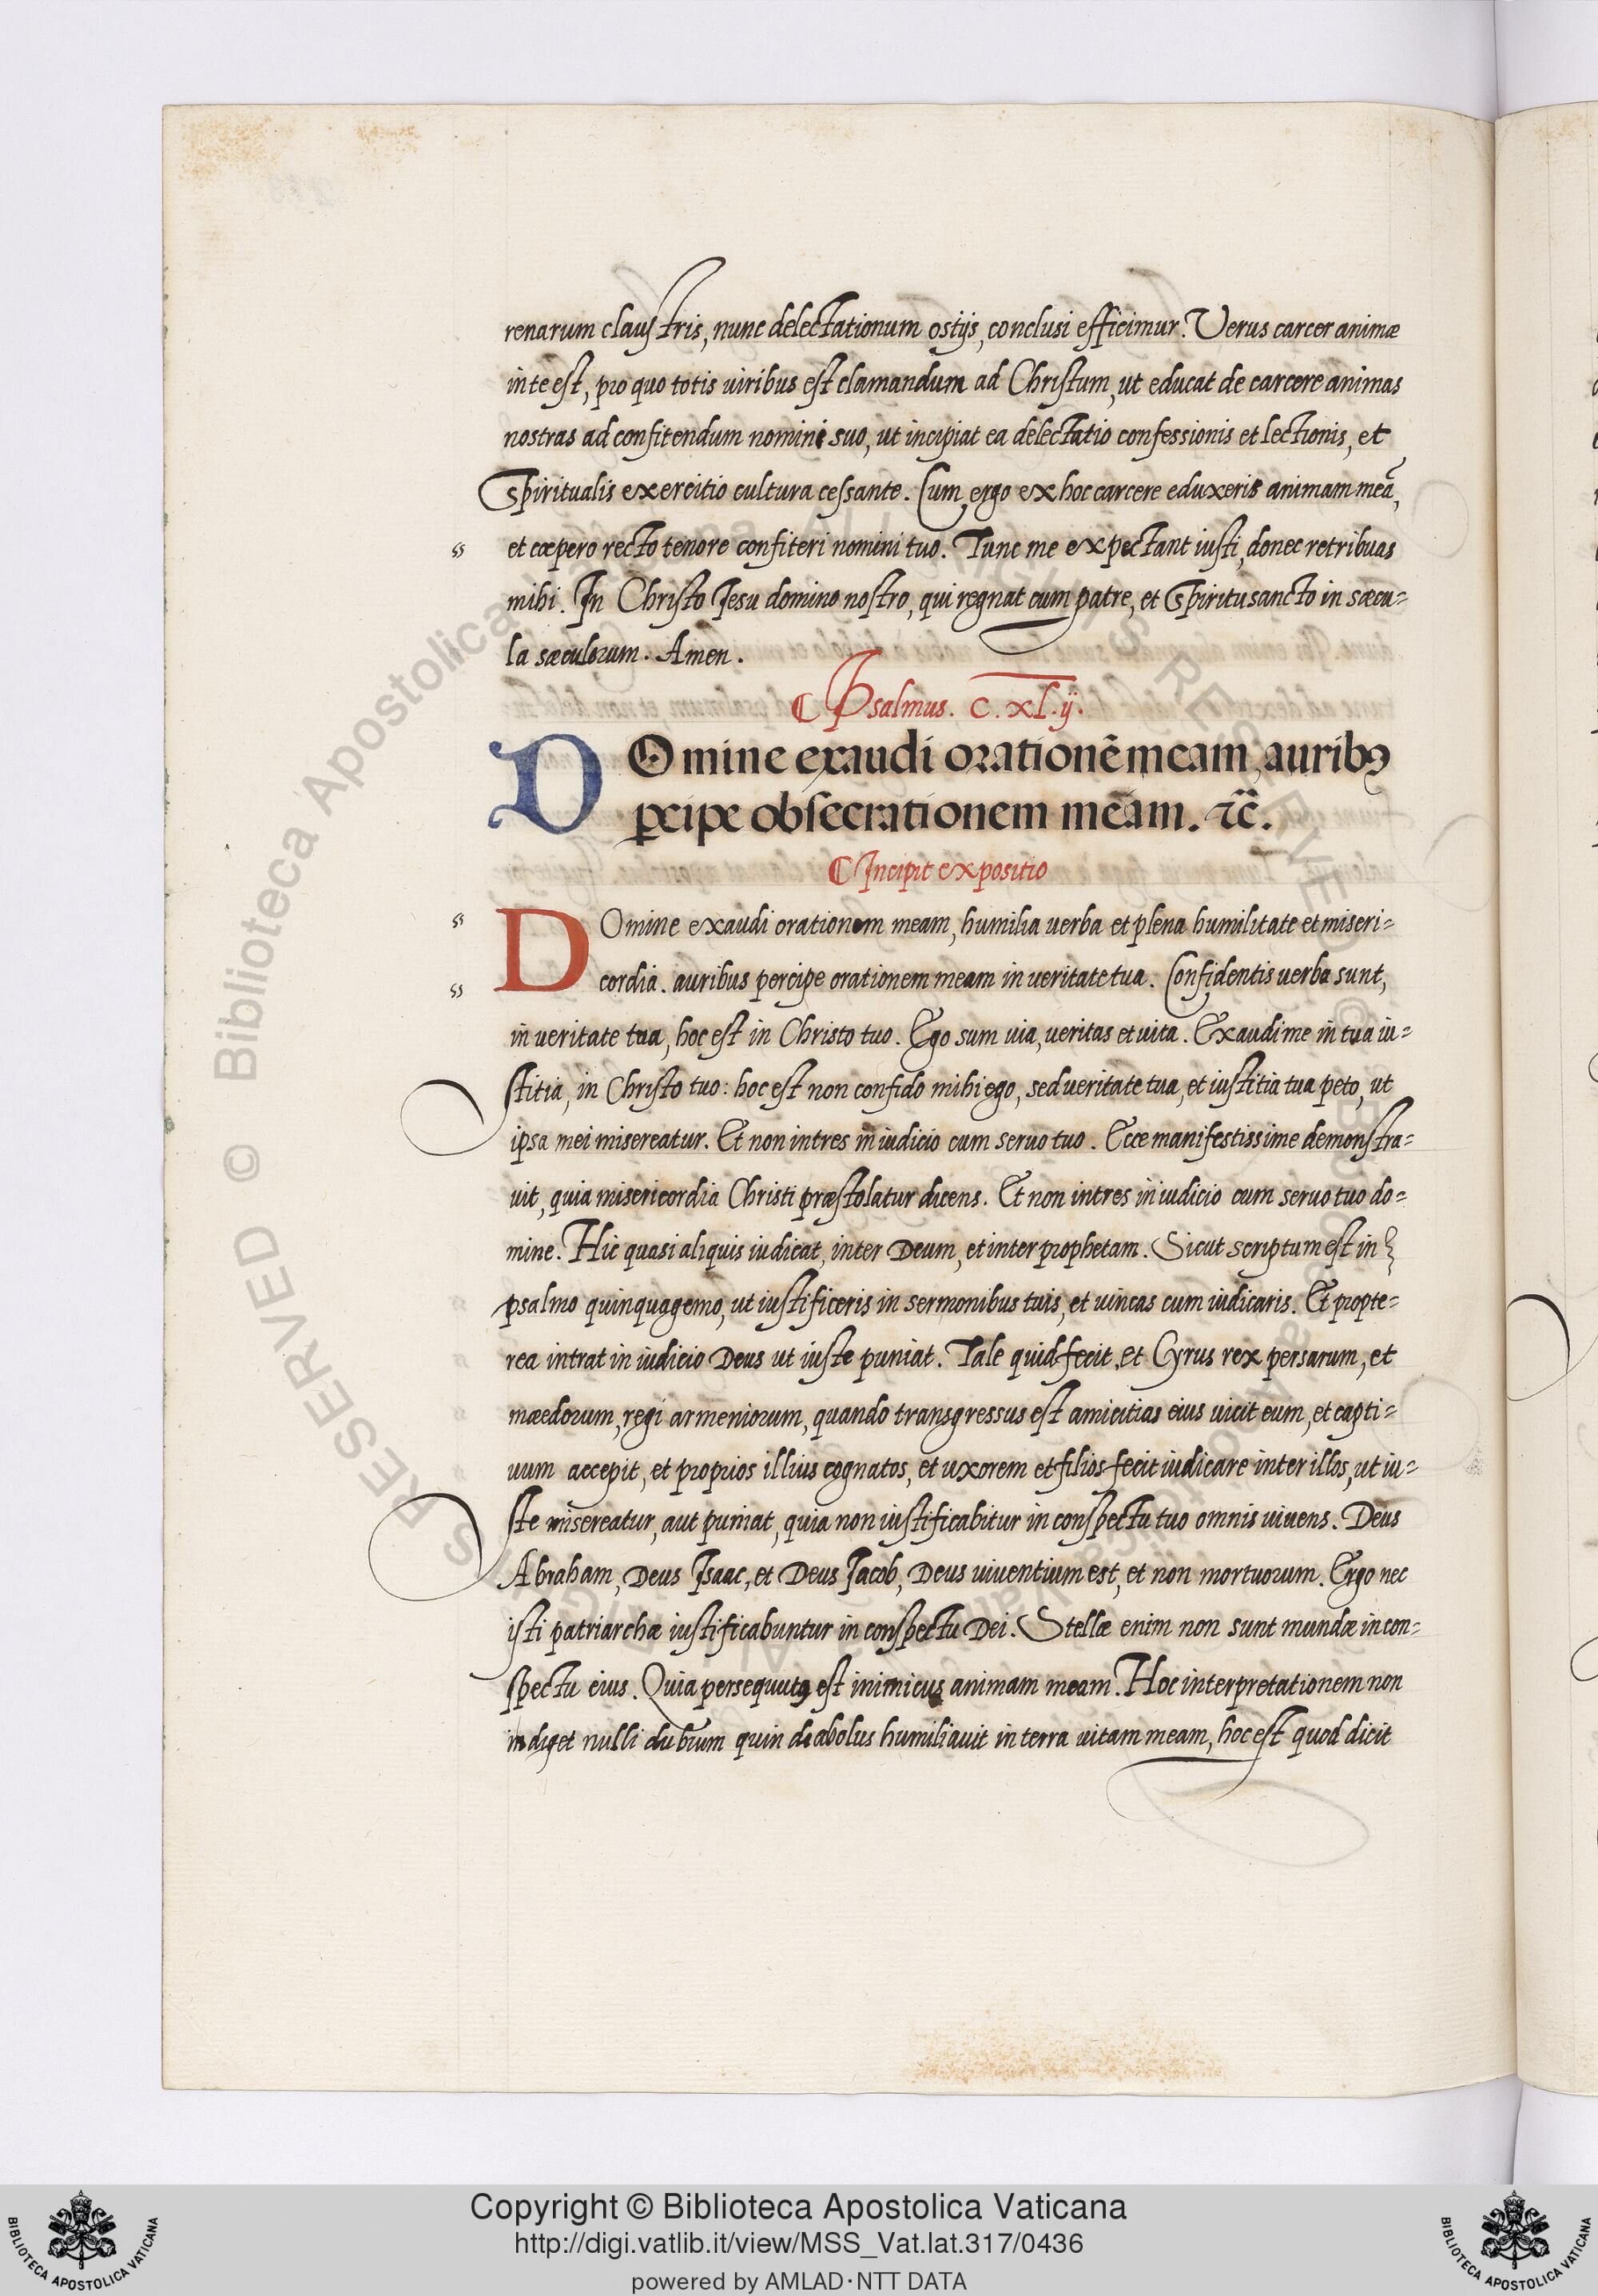 renarum claustris, nunc delectationum ostijs, conclusi efficimur. Verus carcer animæ
in te est, pro quo totis uiribus est clamandum ad Christum, ut educat de carcere animas
nostras ad confitendum nomini suo, ut incipiat ea delectatio confessionis et lectionis, et
Spiritualis exercitio cultura cessante. Cum ergo ex hoc carcere eduxeris animam meā,
et cœpero recto tenore confiteri nomini tuo. Tunc me expectant iusti, donec retribuas
mihi. In Christo Iesu domino nostro, qui regnat cum patre, et Spiritu sancto in sæcu=
la sæculorum. Amen.
Psalmus. C.xl.ij.
DOmine exaudi orationē meam, auribꝰ
ꝑcipe obsecrationem meam. ⁊c̃.
Incipit expositio
DOmine exaudi orationem meam, humilia uerba et plena humilitate et miseri=
cordia. auribus percipe orationem meam in ueritate tua. Confidentis uerba sunt,
in ueritate tua, hoc est in Christo tuo. Ego sum uia, ueritas et uita. Exaudi me in tua iu=
stitia, in Christo tuo: hoc est non confido mihi ego, sed ueritate tua, et iustitia tua peto, ut
ipsa mei misereatur. Et non intres in iudicio cum seruo tuo. Ecce manifestissime demonstra=
uit, quia misericordia Christi præstolatur dicens. Et non intres in iudicio cum seruo tuo do=
mine. Hic quasi aliquis iudicat, inter Deum, et inter prophetam. Sicut scriptum est in
psalmo quinquagemo, ut iustificeris in sermonibus tuis, et uincas cum iudicaris. Et propte=
rea intrat in iudicio Deus ut iuste puniat. Tale quid fecit et Cyrus rex persarum, et
mædorum, regi armeniorum, quando transgressus est amicitias eius uicit eum, et capti=
uum accepit, et proprios illius cognatos, et uxorem et filios fecit iudicare inter illos, ut iu=
ste misereatur, aut puniat, quia non iustificabitur in conspectu tuo omnis uiuens. Deus
Abraham, Deus Isaac, et Deus Iacob, Deus uiuentium est, et non mortuorum. Ergo nec
isti patriarchæ iustificabuntur in conspectu Dei. Stellæ enim non sunt mundæ in con=
spectu eius. Quia persequutꝰ est inimicus animam meam. Hoc interpretationem non
indiget nulli dubium quin diabolus humiliauit in terra uitam meam, hoc est quod dicit
© Biblioteca Apostolica Vaticana ALL RIGHTS RESERVED
Copyright © Biblioteca Apostolica Vaticana
http://digi.vatlib.it/view/MSS_Vat.lat.317/0436
powered by AMLAD·NTT DATA
BIBLIOTECA APOSTOLICA VATICANA
BIBLIOTECA APOSTOLICA VATICANA